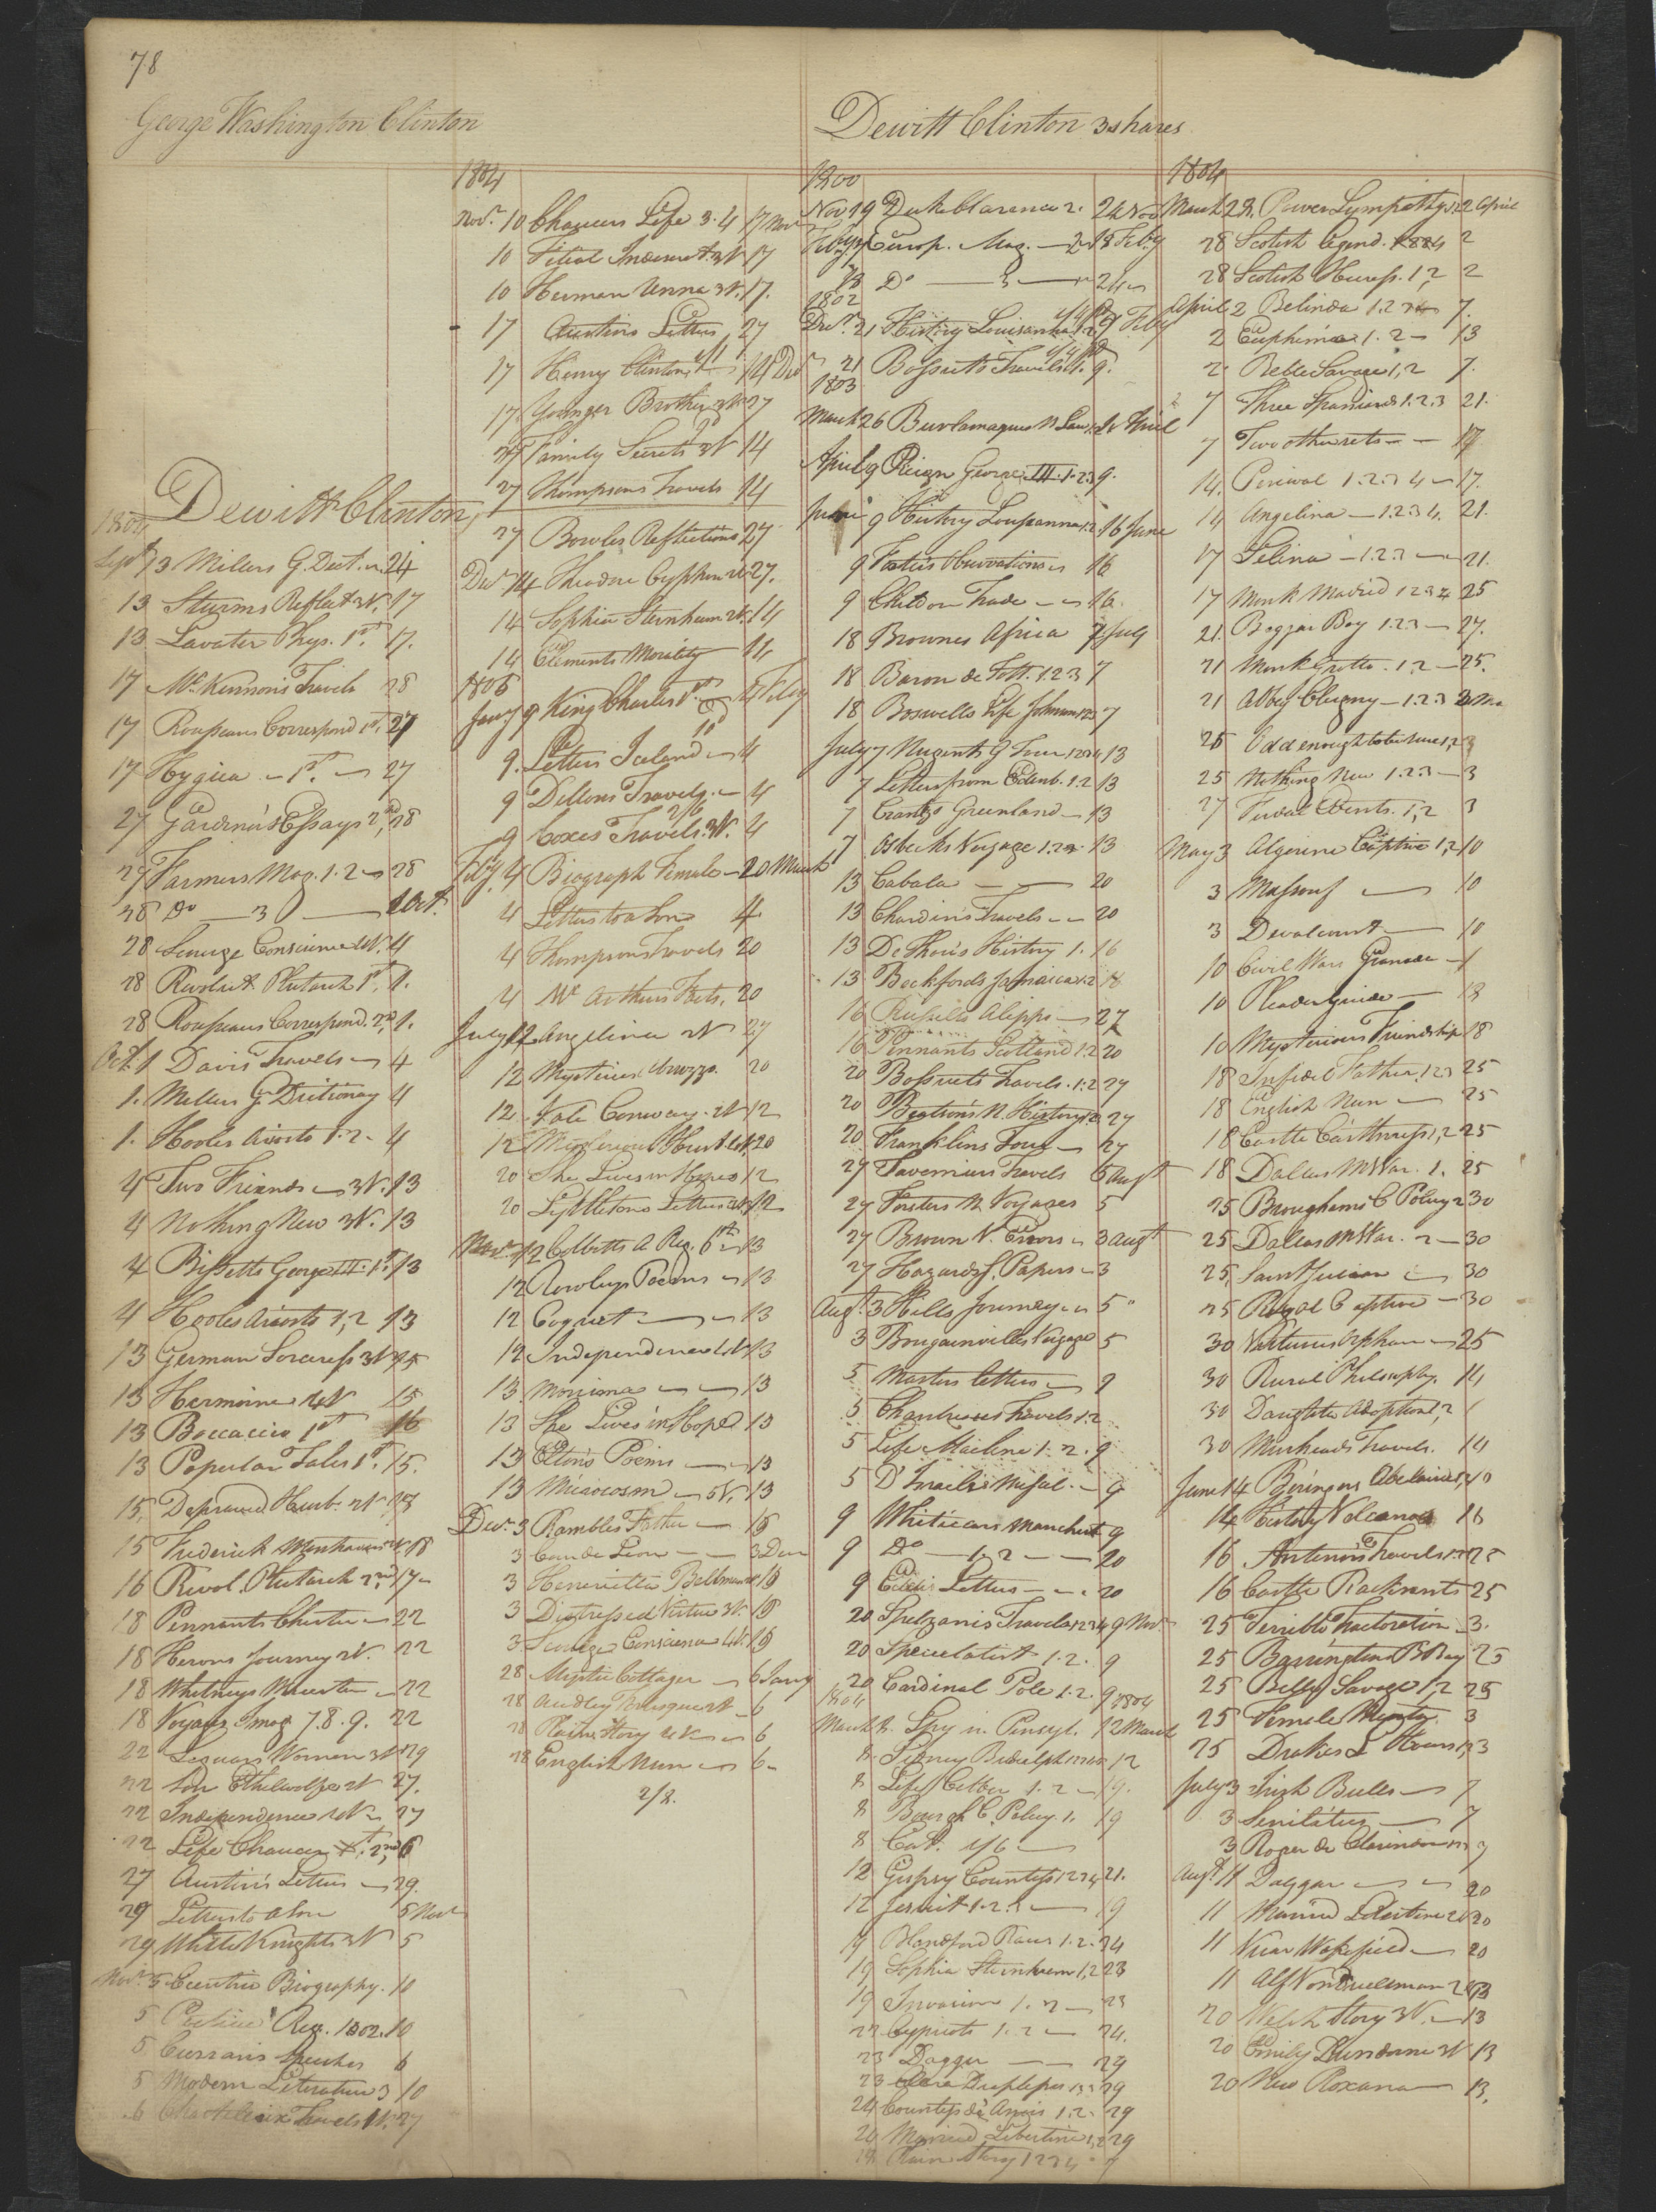 78
George Washington Clinton
Dewitt Clinton,
1804
Sept 13 Millers G. Dict. 24
13 Sturms Reflect 3V. 17
13 Lavater Phys. 1st. 17.
17 McKinnons Travels 28
17 Rousseaus Correspond 1st. 27
17 Hygiea 1st. 27
27 Gardiner's Essays 2nd, 28
27 Farmers Mag. 1.2 28
28 Do 3 1 Oct.
28 Scourge Conscience 4V. 4
28 Revolut. Plutarch 1st. 1.
28 Rousseaus Correspond. 2nd, 1.
Oct. 1 Davis Travels 4
1. Millers G. Dictionay 4
1. Hooles Ariosto 1.2. 4
4 Two Friends 3V. 13
4 Nothing New 3V. 13
4 Bissetts George III. 1st. 13
4 Hooles Ariosto 1,2 13
13 German Sorceress 3V 15
13 Hermione 4V 15
13 Boccaccio 1st 16
13 Popular Tales 1st. 15.
15, Depraved Husb. 2V. 18
15 Frederick 18
16 Revol. Plutarch 2nd, 17
18 Pennants Chester 22
18 Herons Journey 2V. 22
18 Whitneys Worcester 22
18 Voyages Imag 7.8.9. 22
22 Women 3V 29
22 Son Ethelwolf 2V 27.
22 Independence 4V 27
22 Life Chaucer 2nd, 6
27 Austin's Letters 29.
29 Letters to a Son 5 Novr
29 White Knights 3V 5
Novr 5 Eccentric Biography. 10
5 Reg. 1802. 10
5 Currans Speeches 6
5 Modern Literature 3 10
6 Travels 27
1804
Novr. 10 Chaucers Life 3.4 17 Nov
10 Filial Indiscret. 3V 17
10 Herman Unna 3V. 17.
17 Austins Letters 27
17 Henry Clinton 14 Decr
17 Younger Brother 27
27 Family Secrets 3V 14
27 Thompsons Travels 14
27 Bowles Reflections 27
Decr 14 Theodore Cyphon 27.
14 Sophia Sternheim 2V. 14
14 Elements Morality 14
1805
Jany 9 King Charles 1st. 4 Feby
9. Letters Iceland 4
9 Dillons Travels. 4
9 Coxes Travels. 3V. 4
Feby 4 Biograph Female 20 March
4 Letters to a Son 4
4 Thompsons Travels 20
4 Mc Arthurs Facts. 20
July 12 Angelina 2V 27
12 Mysteries Abruzzo. 20
12 Vale Conway. 2V 12
12 Mysterious Husb. 4V. 20
20 She Lives in Hopes 12
20 Lyttletons Letters 12
Novr. 12 Cobbetts A Reg. 6th 13
12 Rowleys Poems 13
12 Coquet 13
12 Independence 4V 13
13 Monima 13
13 She Lives in Hope 13
13 Elton's Poems 13
13 Microcosm 5V. 13
Decr. 3 Rambles Father 18
3 Cœur de Lion 3 Dec
3 Henrietta Bellmann 18
3 Distressed Virtue 3V. 18
3 Scourge Conscience 4V. 18
28 Mystic Cottager 6 Jany
28 Audley Fortescue 2V 6
28 Plain Story 4V 6
28 English Nun 6
2/2.
Dewitt Clinton 3 shares
1800
Nov 19 Duke Clarence 2. 24 Nov
Feby 7 Europ. Mag. 2 18 Feby
18 Do 3 24
1802
Decr. 21 History Louisania 1.2 9 Feby
21 Bossuets Travels 9.
1803
March 26 Burlamaquis N Law 1. 2 April
April 9 Reign George III. 1.2.3 9.
June 9 History Louisanna 1.2. 16 June
9 Fosters Observations 16
9 Child on Trade 16.
18 Brownes Africa 7 July
18 Baron de Tott. 1.2.3 7
18 Boswells Life Johnson 1.2.3 7
July 7 Nugents G Tour 1.2.3.4 13
7 Letters from Edinb. 1.2 13
7 Crantzs Greenland 13
7 Osbecks Voyage 1.2. 13
13 Cabala 20
13 Chardin's Travels 20
13 De Thou's History 1. 16
13 Beckfords Jamaica 1.2 18
16 Russells Aleppo 27
16 Pennants Scotland 1.2 20
20 Bossuets Travels. 1.2 27
20 N. History 27
20 Franklins Tour 27
27 Taverniers Travels 5 augt
27 Forsters N Voyages 5
27 Brown V. Errors 3 augt
27 Hazards S. Papers 3
Augt. 3 Hills Journey 5
3 Bougainvilles Voyage 5
5 Masters letters 9
5 Travels 1.2
5 Life 1.2. 9
5 D'Israelis Misfal. 9
9 Whitakers Manchest 9
9 Do 1.2 20
9 Eddis Letters 20
20 Spalzanis Travels 1.2.3.4 9 Novr
20 Speculatist 1.2. 9
20 Cardinal Pole 1.2. 9
1804
March 8. Spy in Pensyl. 12 March
8. Sidney Bidulph 12
8 Life Cibber 1.2 19.
8 Brough. C. Policy 1. 19
8 Cat. 1/6
12 Gypsy Countess 1.2.3.4 21.
12 Jesuit 1.2.3 19
19 Blandford Races 1.2. 24
19 Sophia Sternheim 1,2 23
19 Invasion 1.2 23
22 Cypriots 1.2 24.
23 Dagger 29
23 29
24 Countess de Anois 1.2. 29
24 Married Libertine 1,2 29
29 Plain Story 1.2.3.4
1804
March 28. Power Sympathy 1.2 2 April
28 Scotish Legend. 1.2.3.4 2
28 Scotish Heiress. 1,2 2
April 2 Belinda 1.2 7.
2 Euphemia 1.2 13
2 Rebel Savage 1,2 7.
7 Three Spaniards 1.2.3 21.
7 Two other sets 17
14. Percival 1.2.3.4 17.
14 Angelina 1.2.3.4. 21.
17 Selina 1.2.3 21.
17 Monk Madrid 1.2.3.4 25
21. Beggar Boy 1.2.3 27.
21 Monk Grotto. 1.2 25.
21 Abbey Clugny 1.2.3
25 Odd enough to be sure 1,2 3
25 Nothing New 1.2.3 3
27 Events. 1,2 3
May 3 Algerine Captive 1,2 10
3 Massouf 10
3 Devalcourt 10
10 Civil Wars Granada 1
10 Pleaders Guide 18
10 Mysterious Friendship 18
18 Infidel Father, 1.2.3 25
18 English Nun 25
18 Castle Caithness 1,2 25
18 Dallas M War. 1. 25
25 Broughams C Policy 2 30
25 Dallas M War. 2 30
25, Saint Julian 30
25 Royal Captive 30
30 Virtuous Orphan 25
30 Rural Philosophy. 14
30 Daughter Adoption 1,2
30 Muirheads Travels. 14
June 14 Beringers Abelard
14 History Volcanoes 16
16 Antenors Travels 1.2.3 25
16 Castle Rackrent 25
25 Terrible Tractoration 3.
25 Barrington B Bay 25
25 Belle Savage 1,2 25
25 Female Ministry 3
25 Drakes L Hours 1,2 3
July 3 Irish Bulls 7
3 Senilities 7
3 Roger de Clarendon 1.2.3 7
Augt 11 Dagger 20
11 Married Libertine 2V 20
11 Vicar Wakefield 20
11 Alf Von Duelman 2V 13
20 Welch Story 3V. 13
20 Emily Dundorne 3V 13
20 New Roxana 13.